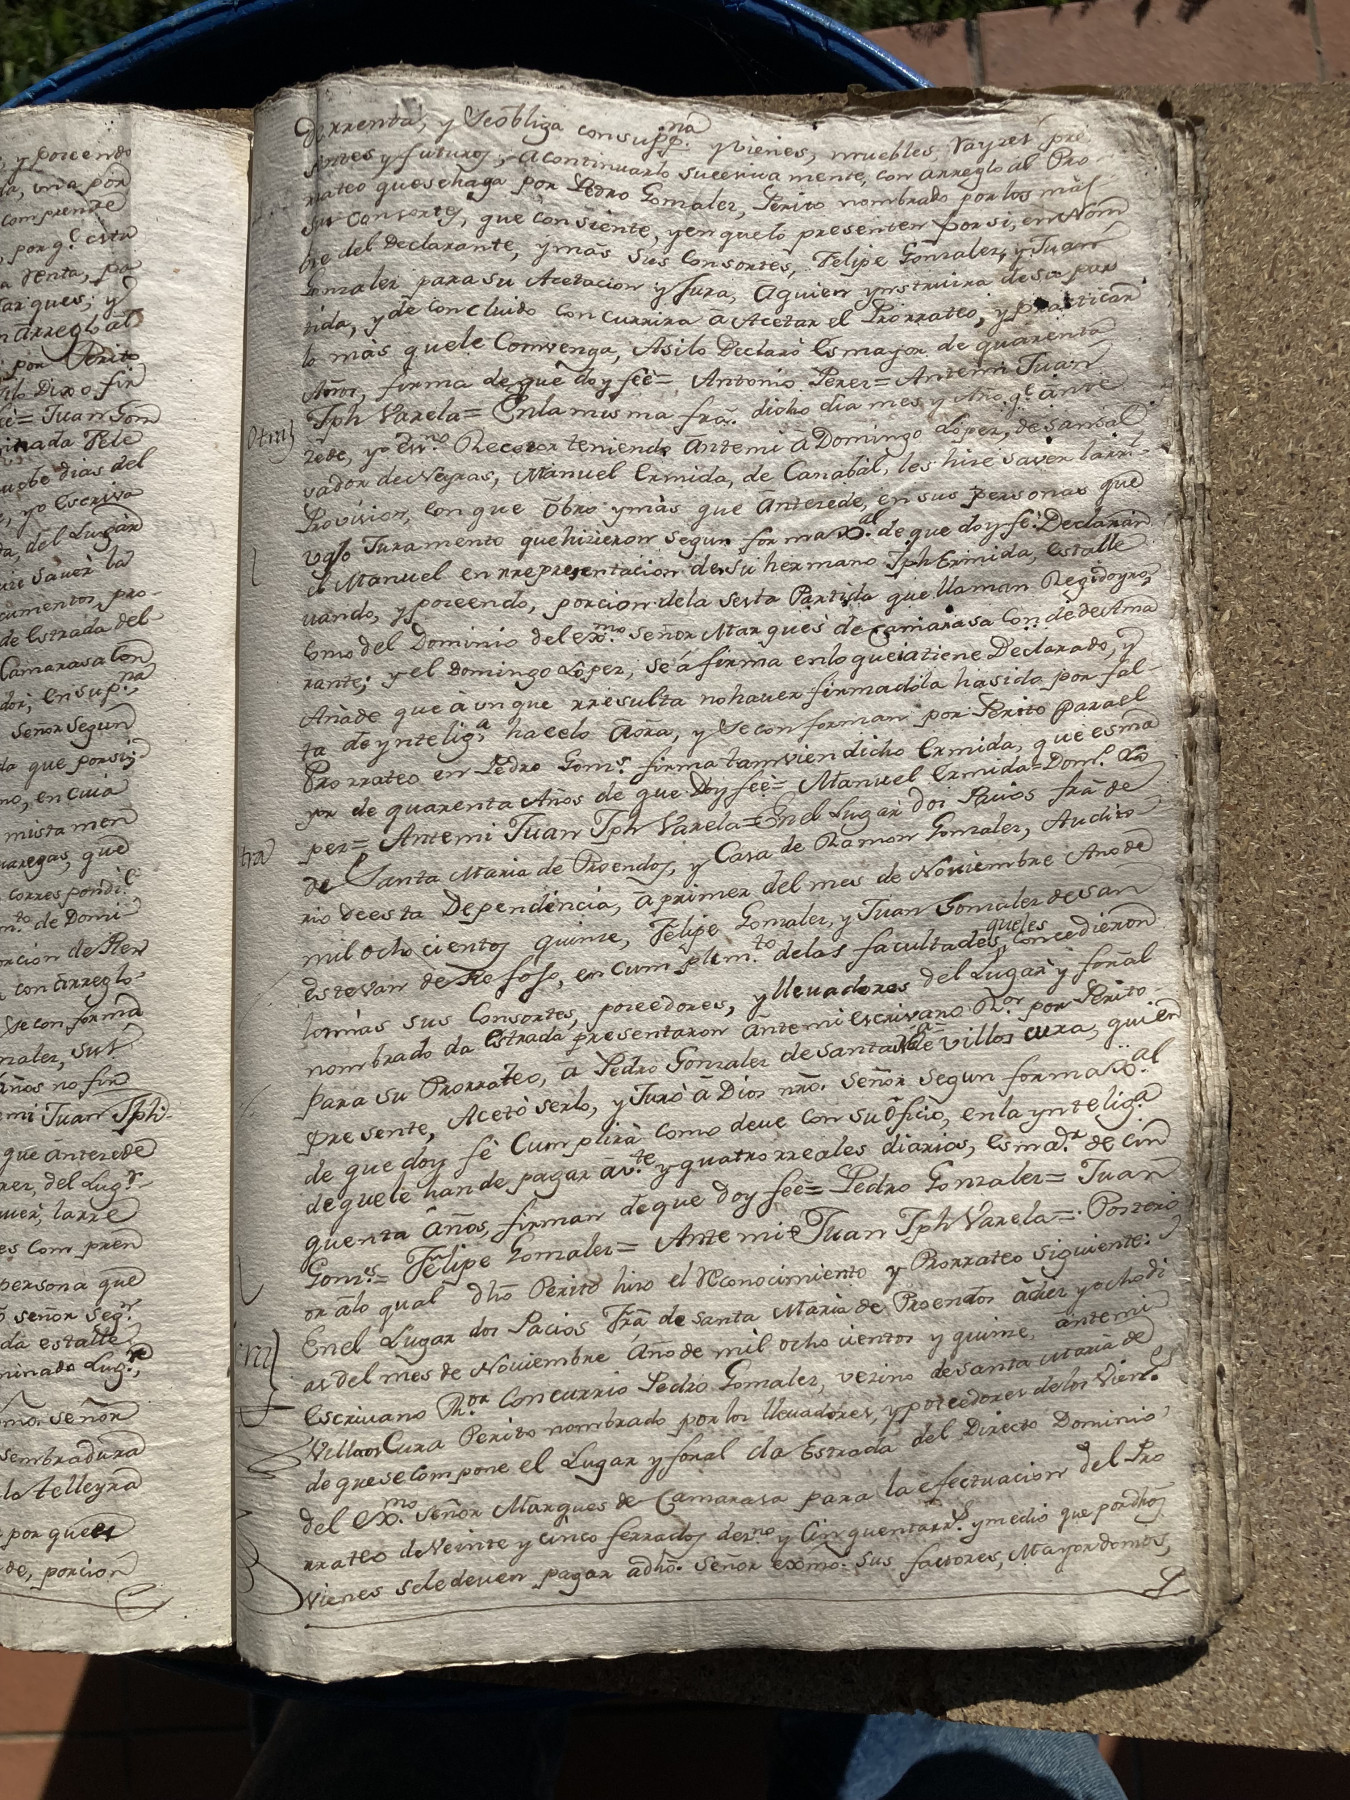 y poreendo
da, una por
comprende
por q.e esta
a Renta, pa
arques; y
n arreglo al
por Perito
silo Dixo fir
fee= Juan Gon
minada Fele
nuebe dias del
yo Escriva
da, del Lugar
ize saver la
cumentos, pro-
de Estrada del
Camarasa Con
dor; en sup.na
Señor Segun
da que por si y
no, en cuia
mista men
que
corres pondi.e
m.to de Domi
orcion de Ren
con arreglo-
se con forma
nzalez, sus
años no fir
emi Juan Jph.
que antezede
rez, del Lug.r
aver, la rre
es Com pren
persona que
Señor Seg.n
da esta lle
minado Lug.r,
mo. señor
sembradura
lo Telleyra
por que es
de, porcion
de rrenta, y Se obliga con su pp.na y vienes, muebles, rayzes pre
sentes y futuros, a continuarlo sucesiva mente, con arreglo al Pro
rrateo que se haga por Pedro Gonzalez, Perito nombrado por los mas
sus Consortes, que consiente, y en que lo presenten por si, en Nom
bre del declarante, y mas sus Consortes, Felipe Gonzalez, y Juan
Gonzalez para su Acetacion y Jura, a quien ynstruira de su par
tida, y de concluido concurrira a Acetar el Prorrateo, y practicar
lo mas que le Comvenga, Asi lo Declaró Es mayor de quarenta
Años, firma de que doy feé= Antonio Perez= Antemi Juan
Otra} Jph Varela= En la misma fra. dicho dia mes y Año q.e ante
zede, yo Ess.no Recetor teniendo Antemi a Domingo Lopez, de San Sal
vador de Neyras, Manuel Ermida, de Canabal, les hize saver la rr.l
Provision, con que obro y mas que Antezede, en sus personas que
vajo Juramento que hizieron segun forma Dx.al de que doy fé: Declaran
el Manuel en rrepresentacion de su hermano Jph Ermida, esta lle
vando, y poseendo, porcion de la Sesta Partida que llaman Regidoyro,
como del Dominio del Ex.mo Señor Marques de Camarasa Con de de Ama
rante; y el Domingo Lopez, se afirma en lo que ia tiene Declarado, y
Añade que aunque rresulta no haver firmadola ha sido por fal
ta de yntelig.a hacelo aora, y se conforman por Perito para el
Prorrateo en Pedro Gom.s firma tamvien dicho Ermida, que es ma
yor de quarenta Años de que Doy feé= Manuel Ermida= Dom.o Lo
tra pez= Antemi Juan Jph Varela= En el Lugar dos Pacios fra de
de Santa Maria de Proendos, y Casa de Ramon Gonzalez, Audito
rio de esta Dependencia, a primer del mes de Noviembre Ano de
mil ocho cientos quinze, Felipe Gonzalez, y Juan Gonzalez de san
Estevan de Refojo, en cum plim.to de las facultades queles concedieron
los mas sus Consortes, poreedores, y llevadores del Lugar y foral
nombrado da Estrada presentaron antemi Escrivano R.or por Perito
para su Prorrateo, a Pedro Gonzalez de Santa M.a de Villos cura, quien
presente, Acetó serlo, y Juró a Dios nro. Señor segun forma Dx.al
de que doy fé Cumplira como deve con su Oficio, en la yntelig.a
de que le han de pagar a v.te y quatro rreales diarios, es ma.r de cin
quenta años, firman de que doy feé= Pedro Gonzalez= Juan
Gom.s= Felipe Gonzalez= Antemi Juan Jph Varela= Poster
or a lo qual dho Perito hizo el Reconocimiento y Prorrateo siguiente:
En el Lugar dos Pacios Fra de Santa Maria de Proendos a diez y ocho di
as del mes de Noviembre Año de mil ocho cientos y quinze, antemi
Escrivano R.or Concurrio Pedro Gonzalez, vezino de Santa Maria de
Villaos Cura Perito nombrado por los llevadores, y poreedores de los vien.s
de que se Compone el Lugar y foral da Estrada del Directo Dominio
del Ex.mo Señor Marques de Camarasa para la efectuacion del Pro
rrateo de Veinte y cinco ferrados de z.no y Cinquenta rr.s y medio que por dhos
vienes se le deven pagar a dho. Señor exmo. sus factores, Mayordomos,